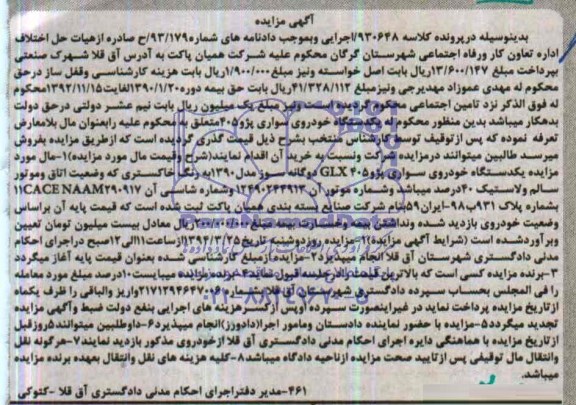 آگهی مزایده
بدینوسیله درپرونده کلاسه ۹۳۰۶۴۸/اجرایی وبموجب دادنامه های شماره۹۳/۱۷۹/ح صادره ازهیات حل اختلاف
اداره تعاون کار ورفاه اجتماعی شهرستان گرگان محکوم علیه شرکت همیان پاکت به آدرس آق قلا شهرک صنعتی
بپرداخت مبلغ ۱۳/۶۰۰/۱۴۷ریال بابت اصل خواسته ونیز مبلغ۱/۹۰۰/۰۰۰ریال بابت هزینه کارشناسی وقفل ساز درحق
محکوم له مهدی عموزاد مهدیرجی ونیزمبلغ ۴۱/۳۲۸/۱۱۳ریال بابت حق بیمه دوره۱۳۹۰/۱/۲۰لغایت۱۳۹۲/۱۱/۱۵محکوم
له فوق الذکر نزد تامین اجتماعی محکوم گردیده است ونیز مبلغ یک میلیون ریال بابت نیم عشر دولتی درحق دولت
بدهکار میباشد بدین منظور محکوم له یکدستگاه خودروی سواری پژو۴۰۵متعلق به محکوم علیه رابعنوان مال بلامعارض
تعرفه نموده که پس ازتوقیف توسط کارشناس منتخب بشرح ذیل قیمت گذاری گردیده است که ازطریق مزایده بفروش
میرسد طالبین میتوانند درمزایده شرکت ونسبت به خرید آن اقدام نمایند(شرح وقیمت مال مورد مزایده)۱-مال مورد
مزایده یکدستگاه خودروی سواری پژو۴۰۵ GLX دوگانه سوز مدل ۱۳۹۰به رنگ خاکستری که وضعیت اتاق وموتور
سالم ولاستیک ۴۰درصد میباشد وشماره موتور آن ۱۲۴۹۰۲۴۳۹۱۳ وشماره شاسی آن ۱۱CACE NAAM۲۹۰۹۱۷
بشماره پلاک ۹۳۱ب۹۸-ایران۵۹بنام شرکت صنایع بسته بندی همیان پاکت ثبت شده است که قیمت پایه آن براساس
وضعیت خودروی بازدید شده ونداشتن بیمه وخسارت بیمه مبلغ ریال معادل بیست میلیون تومان تعیین
وبرآوردشده است (شرایط آگهی مزایده)۱-مزایده روزدوشنبه تاریخ ۱۳۹۴/۳/۲۵ازساعت۱۱الی۱۲صبح دراجرای احکام
مدنی دادگستری شهرستان آق قلاانجام میپذیرد۲-مزایده ازمبلغ کارشناسی شده بعنوان قیمت پایه آغاز میگردد
۳-برنده مزایده کسی است که بالاترین قیمت رادرجلسه قبول نماید۴-برنده مزایده میبایست۱۰درصد مبلغ مورد معامله
را فی المجلس بحساب سپرده دادگستری شهرستان آق قلا واریز والباقی را ظرف یکماه
ازتاریخ مزایده پرداخت نماید در غیراینصورت سپرده اوپس ازکسرهزینه های اجرایی بنفع دولت ضبط ومزایده
تجدید میگردد۵-مزایده با حضور نماینده دادستان ومامور اجرا(دادورز)انجام میپذیرد۶-داوطلبین میتوانند۵روزقبل
ازتاریخ مزایده با هماهنگی دایره اجرای احکام مدنی دادگستری آق قلا ازخودروی مذکور بازدید نمایند۷-هرگونه نقل
وانتقال مال توقیفی پس ازتایید صحت مزایده ازناحیه دادگاه میباشد۸-کلیه هزینه های نقل وانتقال بعهده برنده مزایده
میباشد.
۴۶۱-مدیر دفتراجرای احکام مدنی دادگستری آق قلا -کتوکی